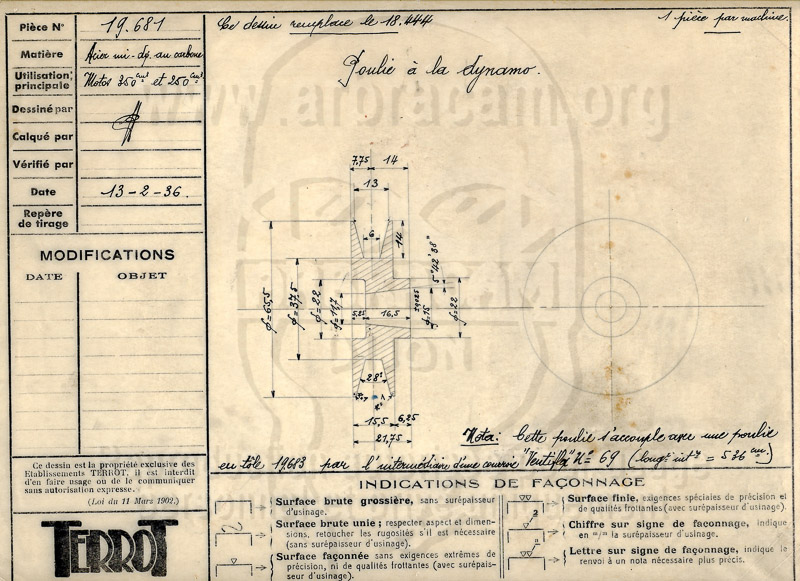 Pièce N° 19.681
Matière Acier mi-dy. au carbone
Utilisation principale Motos 350 cm³ et 250 cm³
Dessiné par
Calqué par
Vérifié par
Date 13-2-36.
Repère de tirage
MODIFICATIONS
DATE OBJET
Ce dessin remplace le 18.444
1 pièce par machine.
Poulie à la dynamo.
www.aroracam.org
7,75 14
13
6
14
5°42'38"
ø=65,5
ø=37,5
ø=22
ø=11,7
5,25 16,5
ø=15
ø=22
28°
15,5 6,25
21,75
DIJON
Nota: Cette poulie s'accouple avec une poulie
en tôle 19.683 par l'intermédiaire d'une courroie "Ventiflex" N° 69 (longr intre = 536 cm.)
Ce dessin est la propriété exclusive des
Etablissements TERROT, il est interdit
d'en faire usage ou de le communiquer
sans autorisation expresse.
(Loi du 11 Mars 1902.)
TERROT
INDICATIONS DE FAÇONNAGE
Surface brute grossière, sans surépaisseur
d'usinage.
Surface brute unie; respecter aspect et dimen-
sions, retoucher les rugosités s'il est nécessaire
(sans surépaisseur d'usinage).
Surface façonnée sans exigences extrêmes de
précision, ni de qualités frottantes (avec surépais-
seur d'usinage).
Surface finie, exigences spéciales de précision et
de qualités frottantes (avec surépaisseur d'usinage).
2
Chiffre sur signe de faconnage, indique
en m/m la surépaisseur d'usinage.
n
Lettre sur signe de façonnage, indique le
renvoi à un nota nécessaire plus précis.